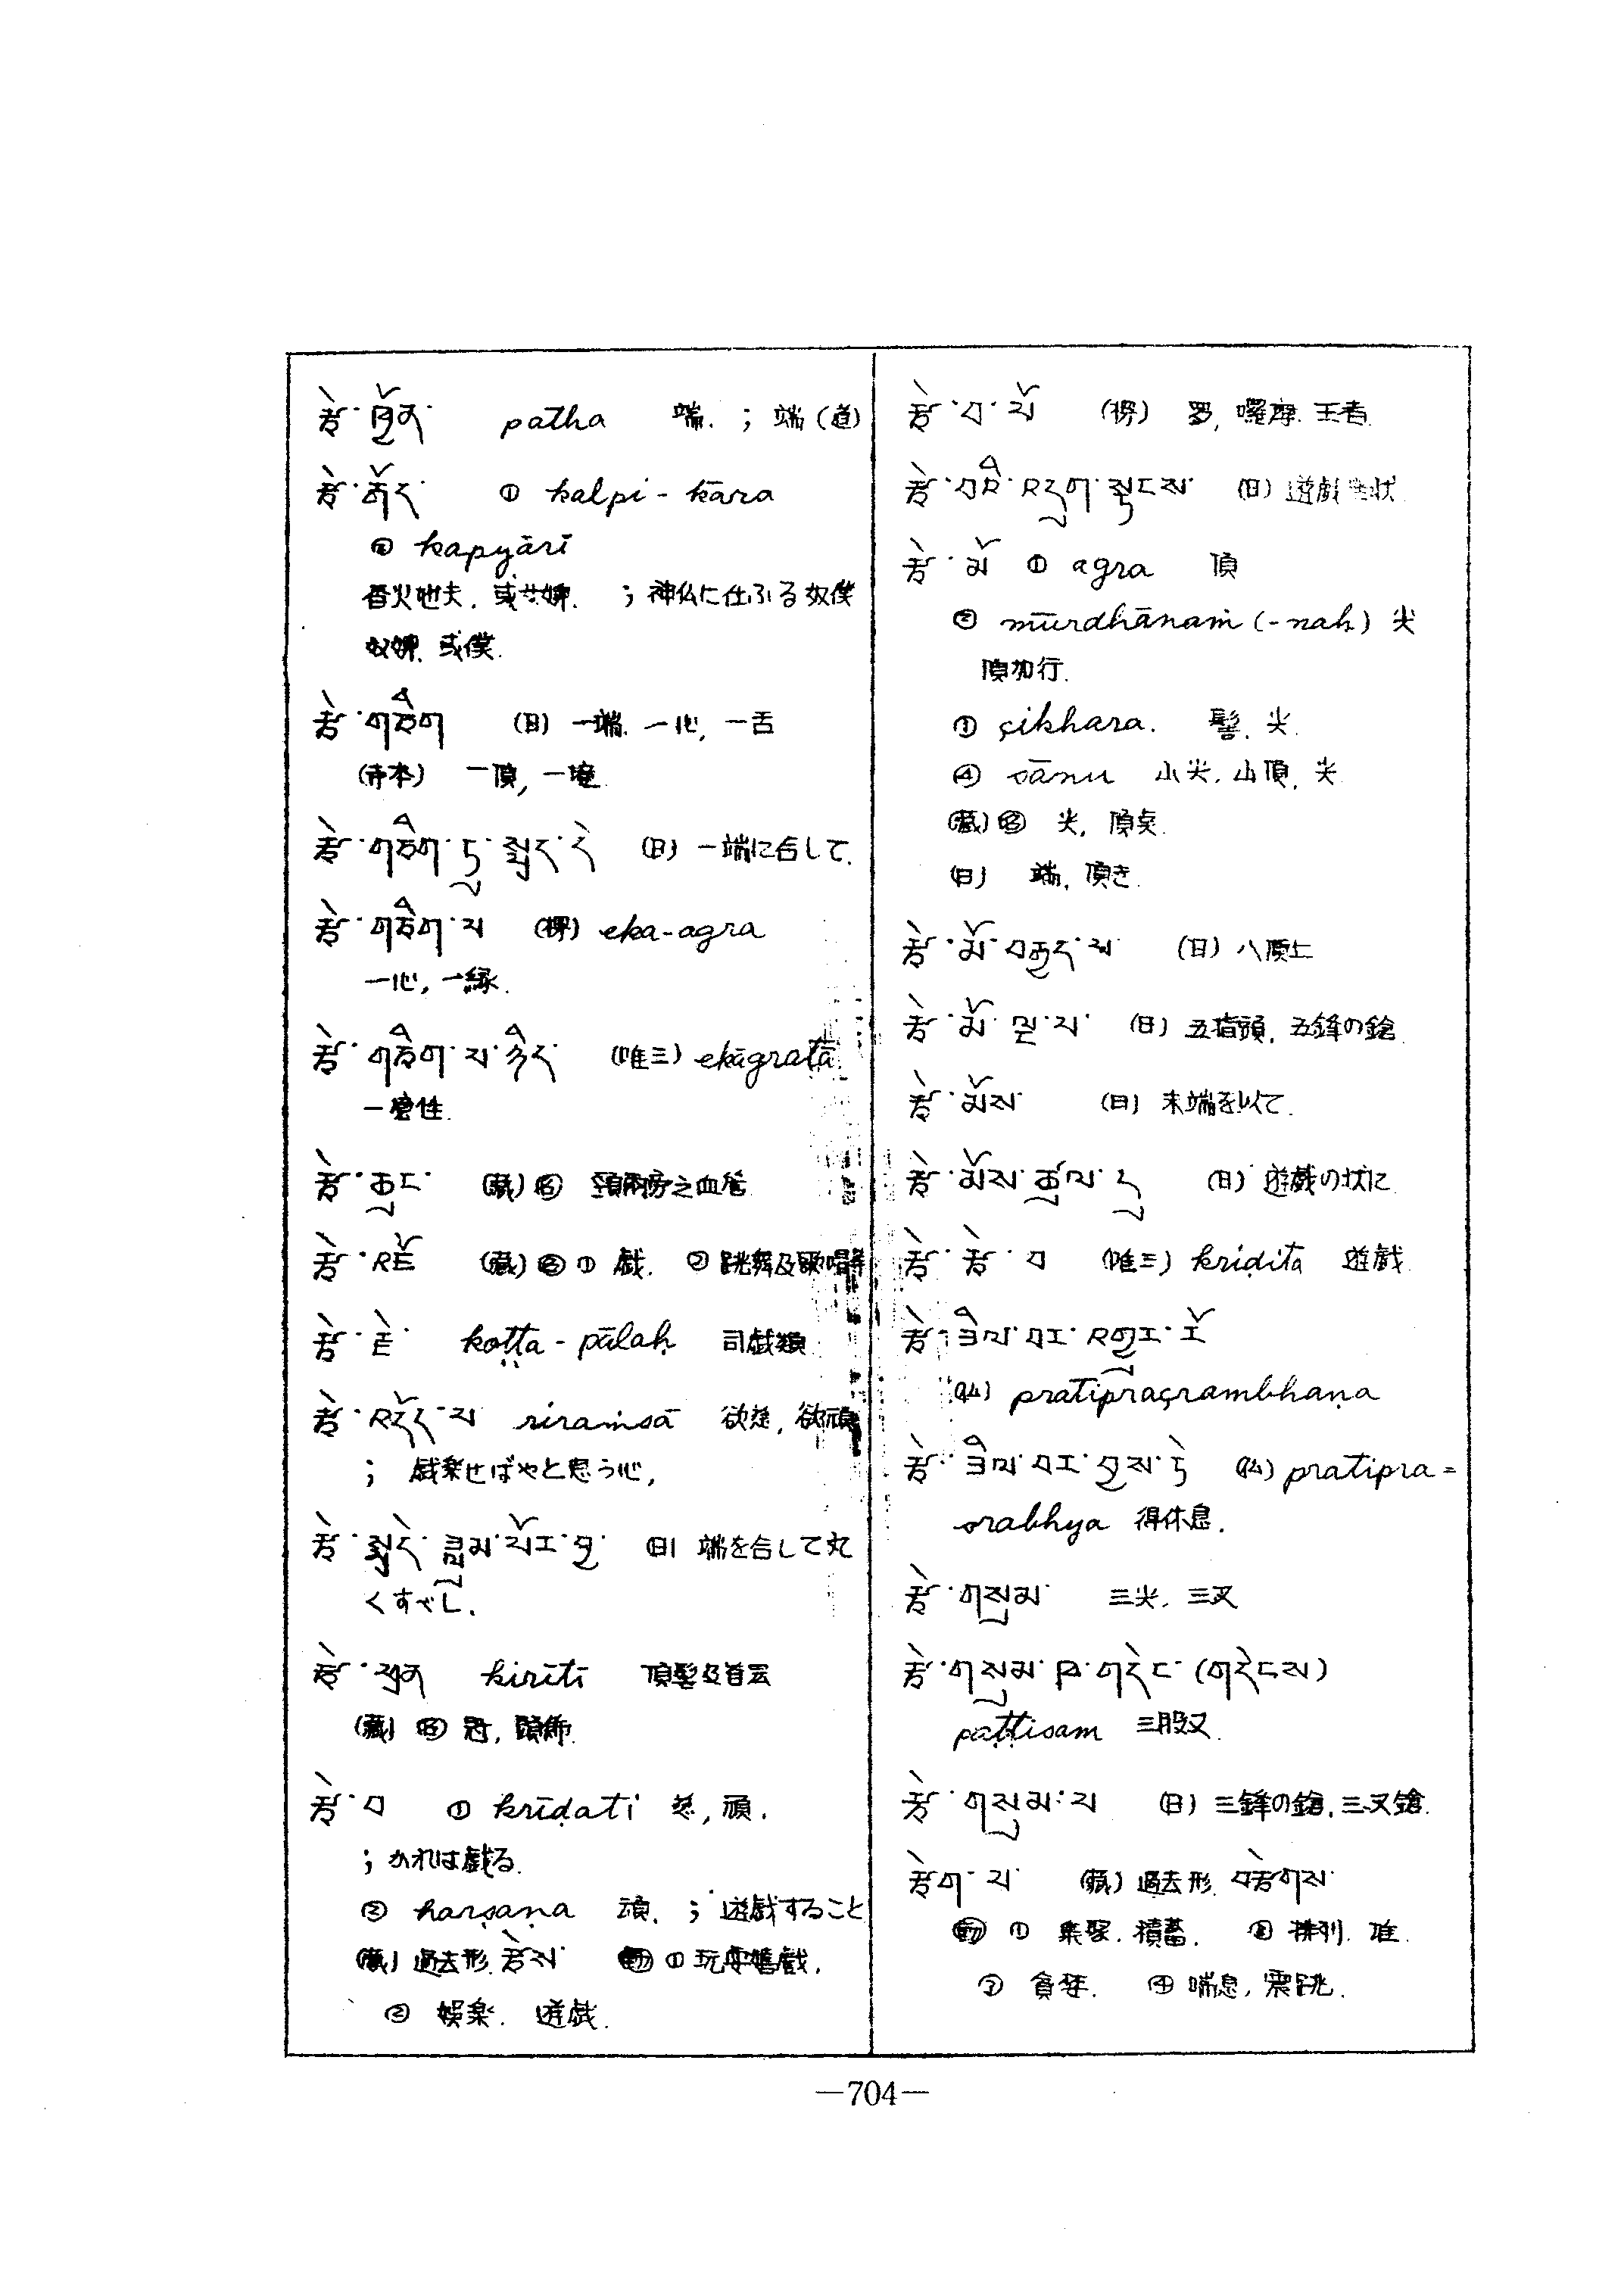 རྩེ་ཁྱོན་ patha 端. ; 端(道)
རྩེ་རྒོད་ ① kalpi-kāra
② kapyārī
香火地夫. 或女婢. ; 神仏に仕ふる奴僕
奴婢. 或僕.
རྩེ་གཅིག (日) 一端. 一心, 一舌
(寺本) 一頂, 一境
རྩེ་གཅིག་ཏུ་སྤྲད་དེ (日) 一端に合して.
རྩེ་གཅིག་པ (榊) eka-agra
一心, 一縁.
རྩེ་གཅིག་པ་ཉིད (唯三) ekāgratā
一境性.
རྩེ་ཆུང་ (蔵) 名 頚両旁之血管
རྩེ་འཇོ (蔵) 名 ① 戯. ② 跳舞及歌唱等
རྩེ་རྗེ་ koṭṭa-pālaḥ 司戯類
རྩེ་འདོད་པ riraṁsā 欲慈, 欲頑
; 戯楽せばやと思う心,
རྩེ་སྤྲད་ ཟླུམ་པོར་བྱ་ (日) 端を合して丸
くすべし.
རྩེ་ཕྲན kirīti 頂髻及首
(蔵) 名 冠, 頭飾.
རྩེ་བ ① krīḍati 慈, 頑.
; かれは戯る.
② harṣaṇa 頑. ; 遊戯すること
(蔵) 過去形. རྩེས་ 動 ① 玩耍嬉戯.
② 娯楽. 遊戯.
རྩེ་བ་པོ (榊) 罗, 囉摩. 王者.
རྩེ་བའི་འདུག་སྟངས་ (日) 遊戯坐状
རྩེ་མོ ① agra 頂
② mūrdhānaṁ (-naḥ) 尖
頂加行.
③ çikhara. 髻. 尖.
④ sānu 小尖. 山頂. 尖
(蔵) 名 尖, 頂点.
(日) 端, 頂き.
རྩེ་མོ་བརྒྱད་པ་ (日) 八頂上
རྩེ་མོ་ལྔ་པ་ (日) 五指頭, 五鋒の鎗
རྩེ་མོས་ (日) 末端を以て.
རྩེ་མོས་ཚུལ་དུ (日) 遊戯の状に
རྩེ་རྩེ་བ (唯三) krīḍita 遊戯.
རྩེ་ཟིལ་བར་འགྱུར་རོ
(仏) pratipraçrambhaṇa
རྩེ་ཟིལ་བར་བྱས་ཏེ (仏) pratipra=
srabhya 得休息.
རྩེ་གསུམ་ 三尖. 三叉
རྩེ་གསུམ་ཁ་གདེང་ (གདེངས)
paṭṭisam 三股叉.
རྩེ་གསུམ་པ (日) 三鋒の鎗, 三叉鎗.
རྩེག་པ་ (蔵) 過去形. བརྩེགས་
動 ① 集聚. 積蓄. ② 排列. 堆.
③ 貪婪. ④ 喘息, 震跳.
—704—